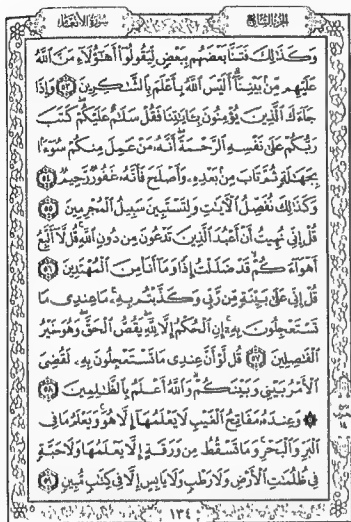 الجزء السابع
سورة الأنعام
وَكَذَٰلِكَ فَتَنَّا بَعْضَهُم بِبَعْضٍ لِّيَقُولُوٓا۟ أَهَٰٓؤُلَآءِ مَنَّ ٱللَّهُ
عَلَيْهِم مِّنۢ بَيْنِنَآ أَلَيْسَ ٱللَّهُ بِأَعْلَمَ بِٱلشَّٰكِرِينَ ٥٣ وَإِذَا
جَآءَكَ ٱلَّذِينَ يُؤْمِنُونَ بِـَٔايَٰتِنَا فَقُلْ سَلَٰمٌ عَلَيْكُمْ كَتَبَ
رَبُّكُمْ عَلَىٰ نَفْسِهِ ٱلرَّحْمَةَ أَنَّهُۥ مَنْ عَمِلَ مِنكُمْ سُوٓءًۢا
بِجَهَٰلَةٍ ثُمَّ تَابَ مِنۢ بَعْدِهِۦ وَأَصْلَحَ فَأَنَّهُۥ غَفُورٌ رَّحِيمٌ ٥٤
وَكَذَٰلِكَ نُفَصِّلُ ٱلْـَٔايَٰتِ وَلِتَسْتَبِينَ سَبِيلُ ٱلْمُجْرِمِينَ ٥٥
قُلْ إِنِّى نُهِيتُ أَنْ أَعْبُدَ ٱلَّذِينَ تَدْعُونَ مِن دُونِ ٱللَّهِ قُل لَّآ أَتَّبِعُ
أَهْوَآءَكُمْ قَدْ ضَلَلْتُ إِذًا وَمَآ أَنَا۠ مِنَ ٱلْمُهْتَدِينَ ٥٦
قُلْ إِنِّى عَلَىٰ بَيِّنَةٍ مِّن رَّبِّى وَكَذَّبْتُم بِهِۦ مَا عِندِى مَا
تَسْتَعْجِلُونَ بِهِۦٓ إِنِ ٱلْحُكْمُ إِلَّا لِلَّهِ يَقُصُّ ٱلْحَقَّ وَهُوَ خَيْرُ
ٱلْفَٰصِلِينَ ٥٧ قُل لَّوْ أَنَّ عِندِى مَا تَسْتَعْجِلُونَ بِهِۦ لَقُضِىَ
ٱلْأَمْرُ بَيْنِى وَبَيْنَكُمْ وَٱللَّهُ أَعْلَمُ بِٱلظَّٰلِمِينَ ٥٨
۞ وَعِندَهُۥ مَفَاتِحُ ٱلْغَيْبِ لَا يَعْلَمُهَآ إِلَّا هُوَ وَيَعْلَمُ مَا فِى
ٱلْبَرِّ وَٱلْبَحْرِ وَمَا تَسْقُطُ مِن وَرَقَةٍ إِلَّا يَعْلَمُهَا وَلَا حَبَّةٍ
فِى ظُلُمَٰتِ ٱلْأَرْضِ وَلَا رَطْبٍ وَلَا يَابِسٍ إِلَّا فِى كِتَٰبٍ مُّبِينٍ ٥٩
١٣٤